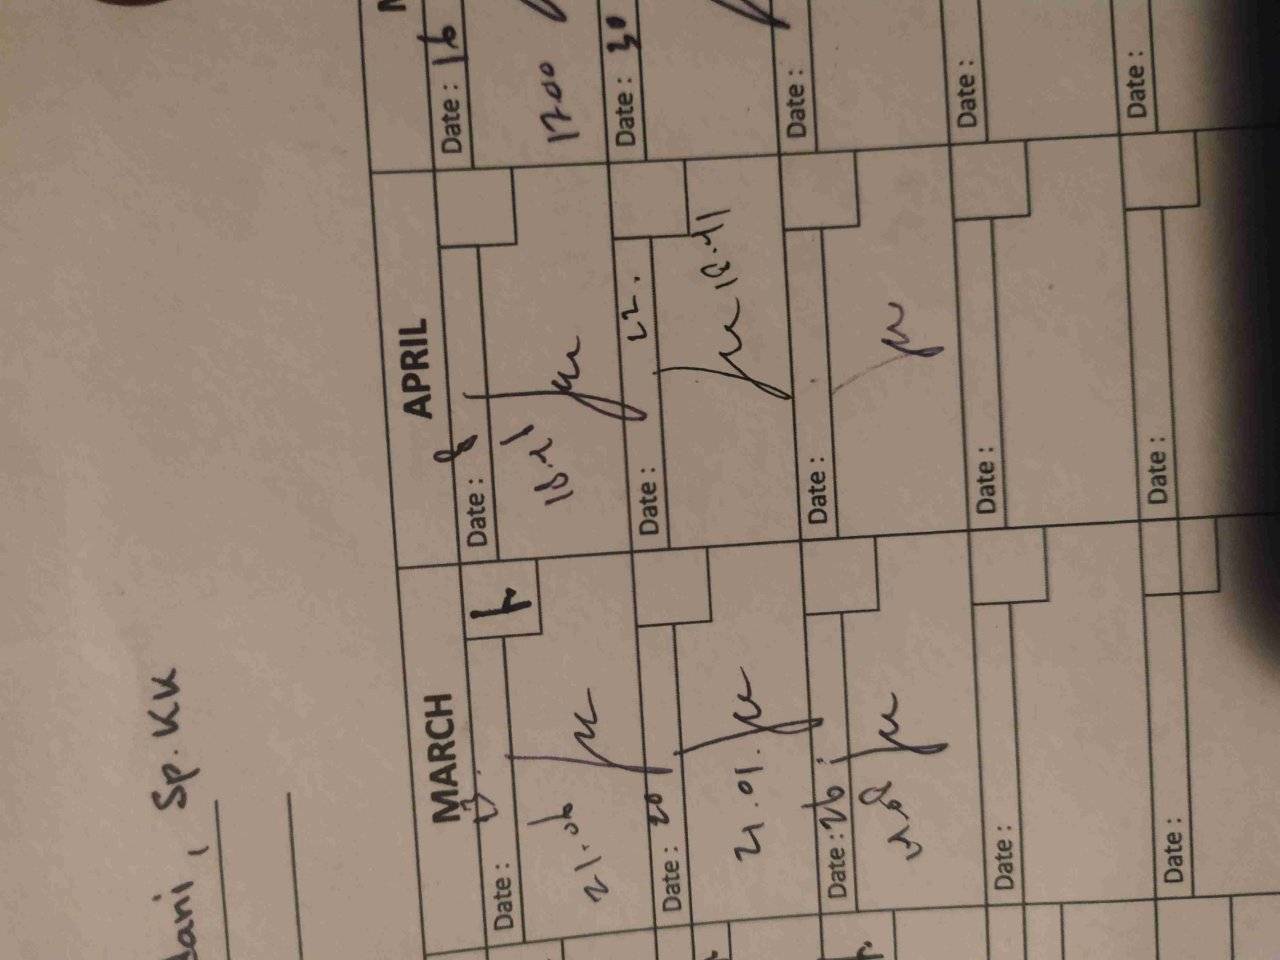 dani, Sp.KK
MARCH
APRIL
Date :
21.06
Date : 8
18.21
Date : 16
1700
Date : 20
21.01.
Date : 22.
Date : 30
Date : 26
Date :
Date :
Date :
Date :
Date :
Date :
Date :
Date :